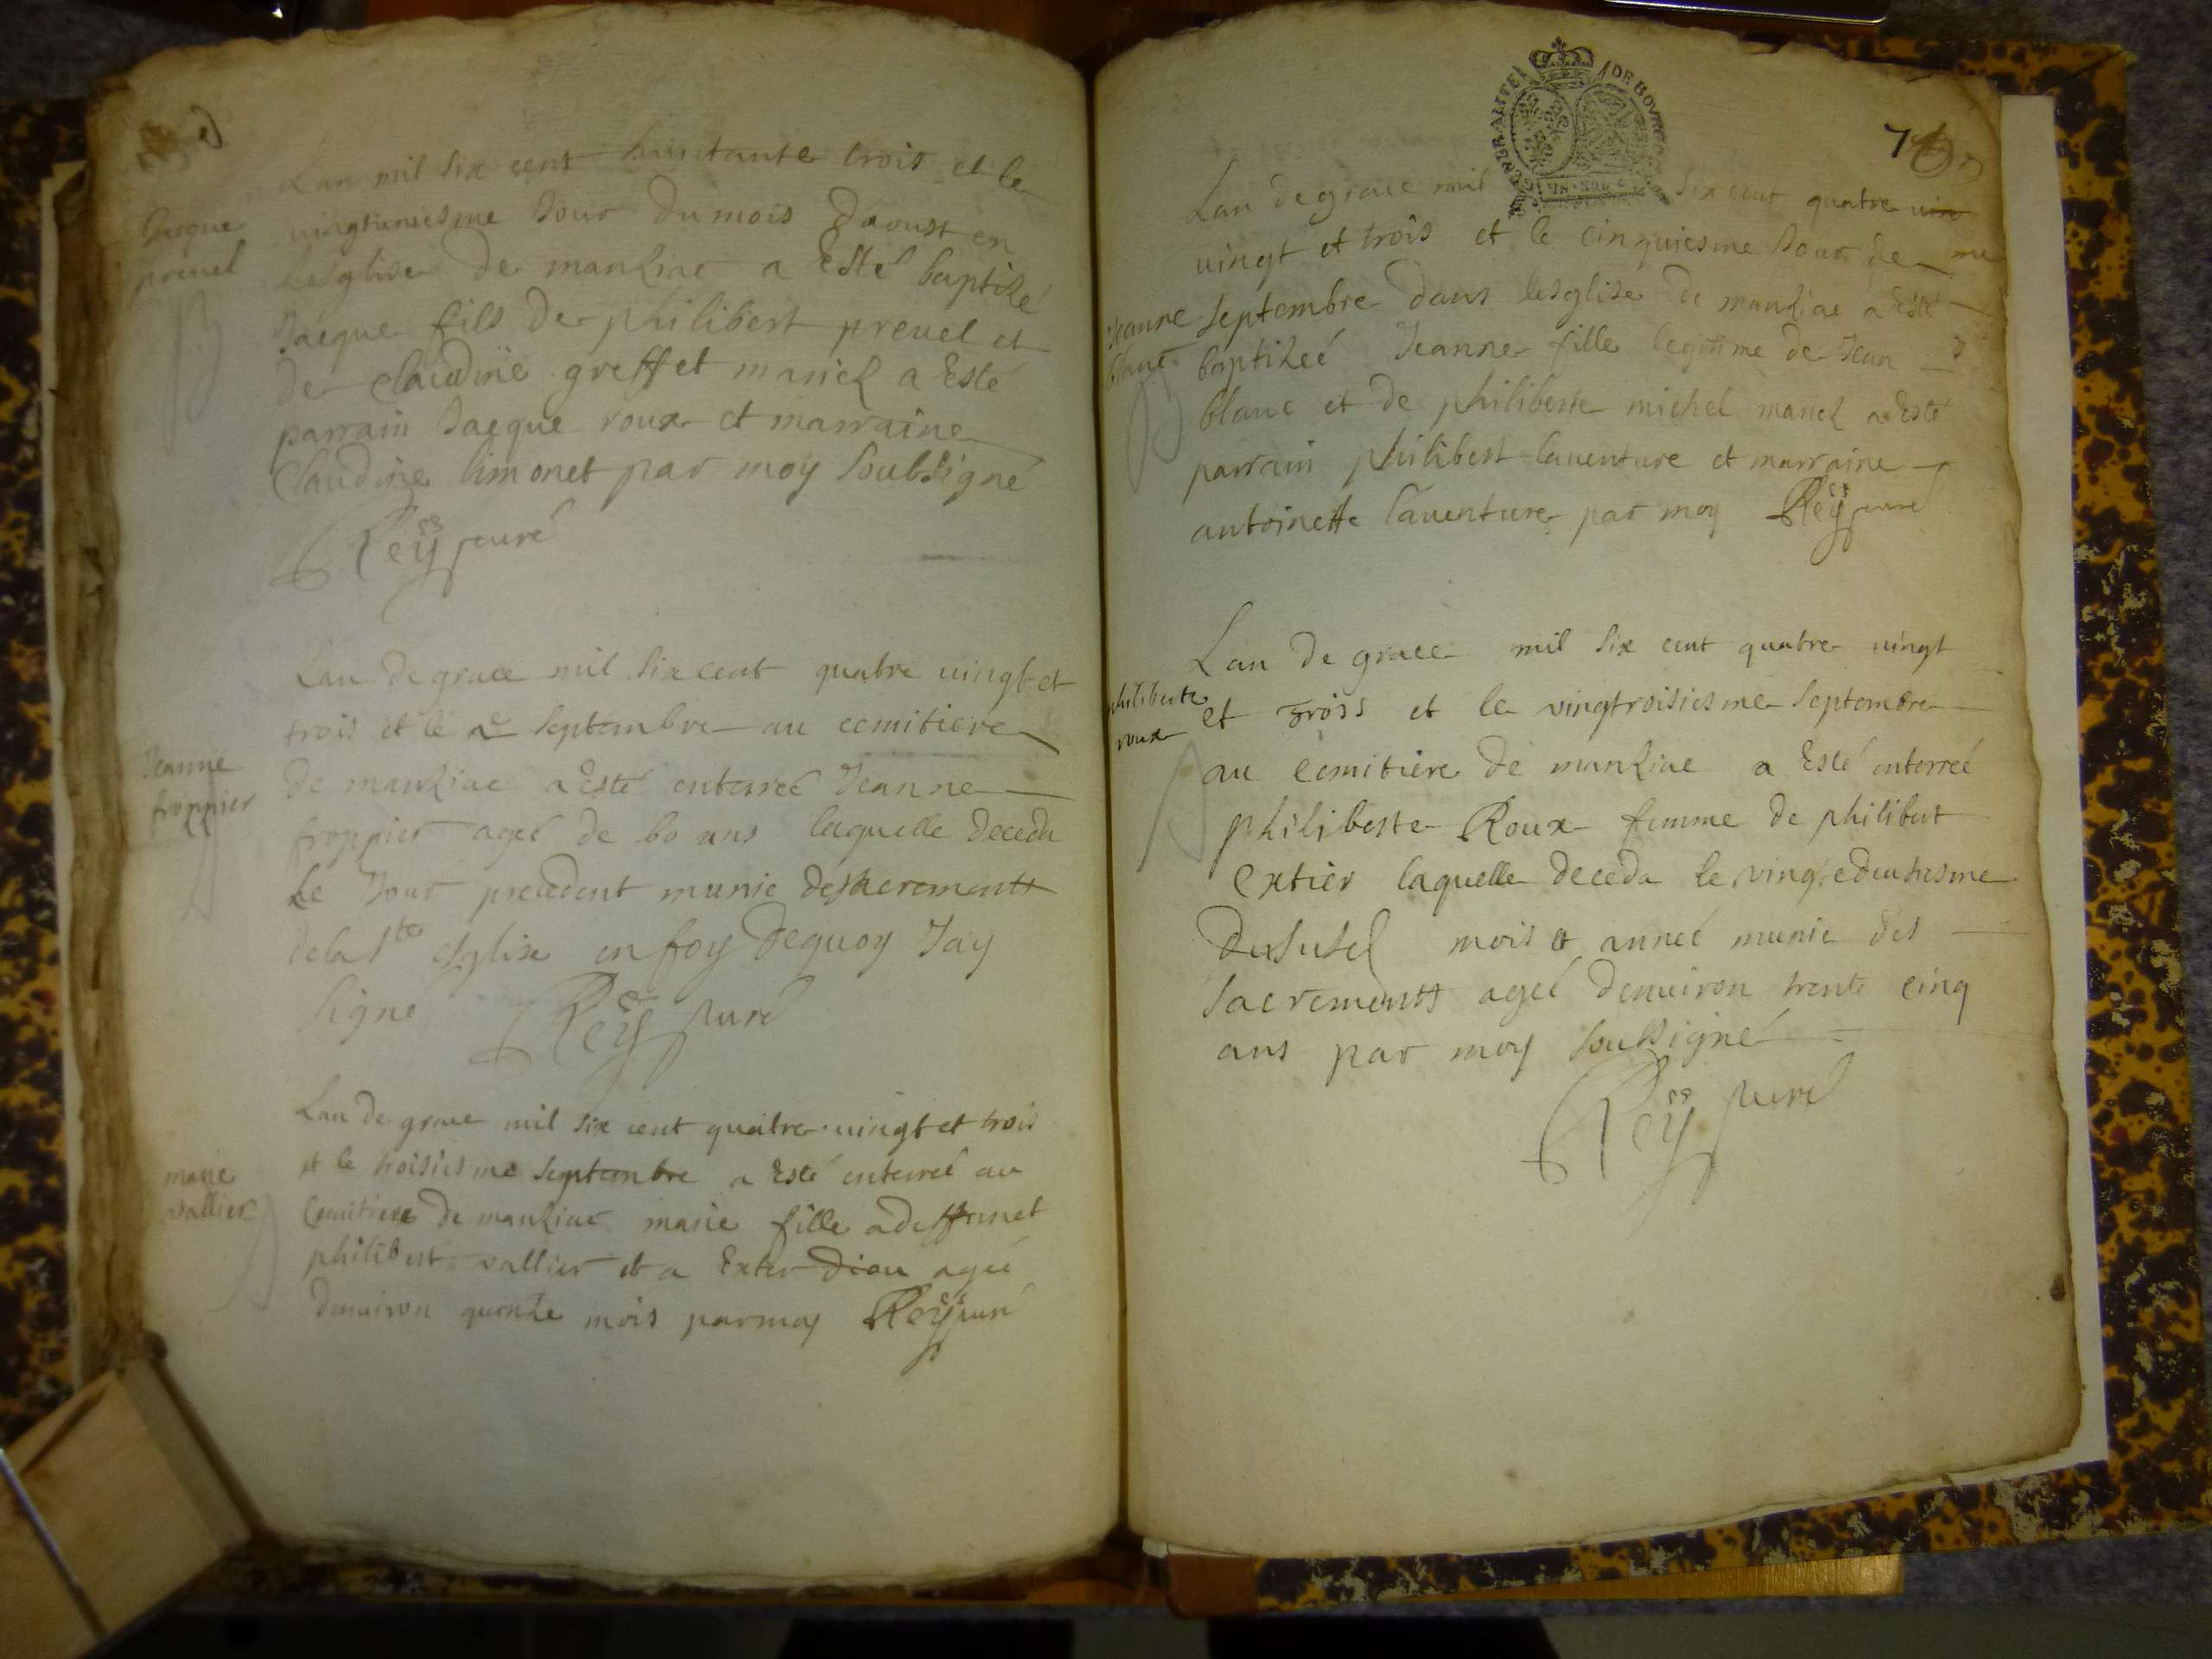 Jacque
preuel
B
Lan mil six cent huictante trois et le
vingtuniesme Jour du mois Daoust en
lesglise de manziac a Esté baptizé
Jacque fils de philibert preuel et
de claudine greffet mariez a Esté
parrain Jacque roux et marraine
Claudine limonet par moy soubsigné
Reÿ curé
Jeanne
froppier
Lan de grace mil six cent quatre uingt et
trois et le 2e septembre au cemitiere
de manziac a Esté enterreé Jeanne
froppier ageé de 60 ans laquelle deceda
Le Jour precedent munie des sacrements
de la Ste esglise en foy dequoy Jay
signé Reÿ curé
marie
vallier
Lan de grace mil six cent quatre uingt et trois
et le troisiesme septembre a Esté enterreé au
Cemitiere de manziac marie fille a deffunct
philibert vallier et a Ester diou ageé
denuiron quinze mois par moy Reÿ curé
GENERALITE DE BOURG
7
Lan de grace mil six cent quatre uin
vingt et trois et le cinquiesme Jour de
Jeanne
blanc
B
septembre dans lesglise de manziac a Esté
baptizeé Jeanne fille legitime de Jean
blanc et de philiberte michel mariez a Esté
parrain philibert lauenture et marraine
antoinette lauenture par moy Reÿ curé
philiberte
roux
Lan de grace mil six cent quatre uingt
et trois et le vingtroisiesme septembre
au cemitiere de manziac a Esté enterreé
philiberte Roux femme de philibert
extier laquelle deceda le vingtedeuxiesme
dususd mois et anneé munie des
sacrements ageé denuiron trente cinq
ans par moy soubsigné
Reÿ curé